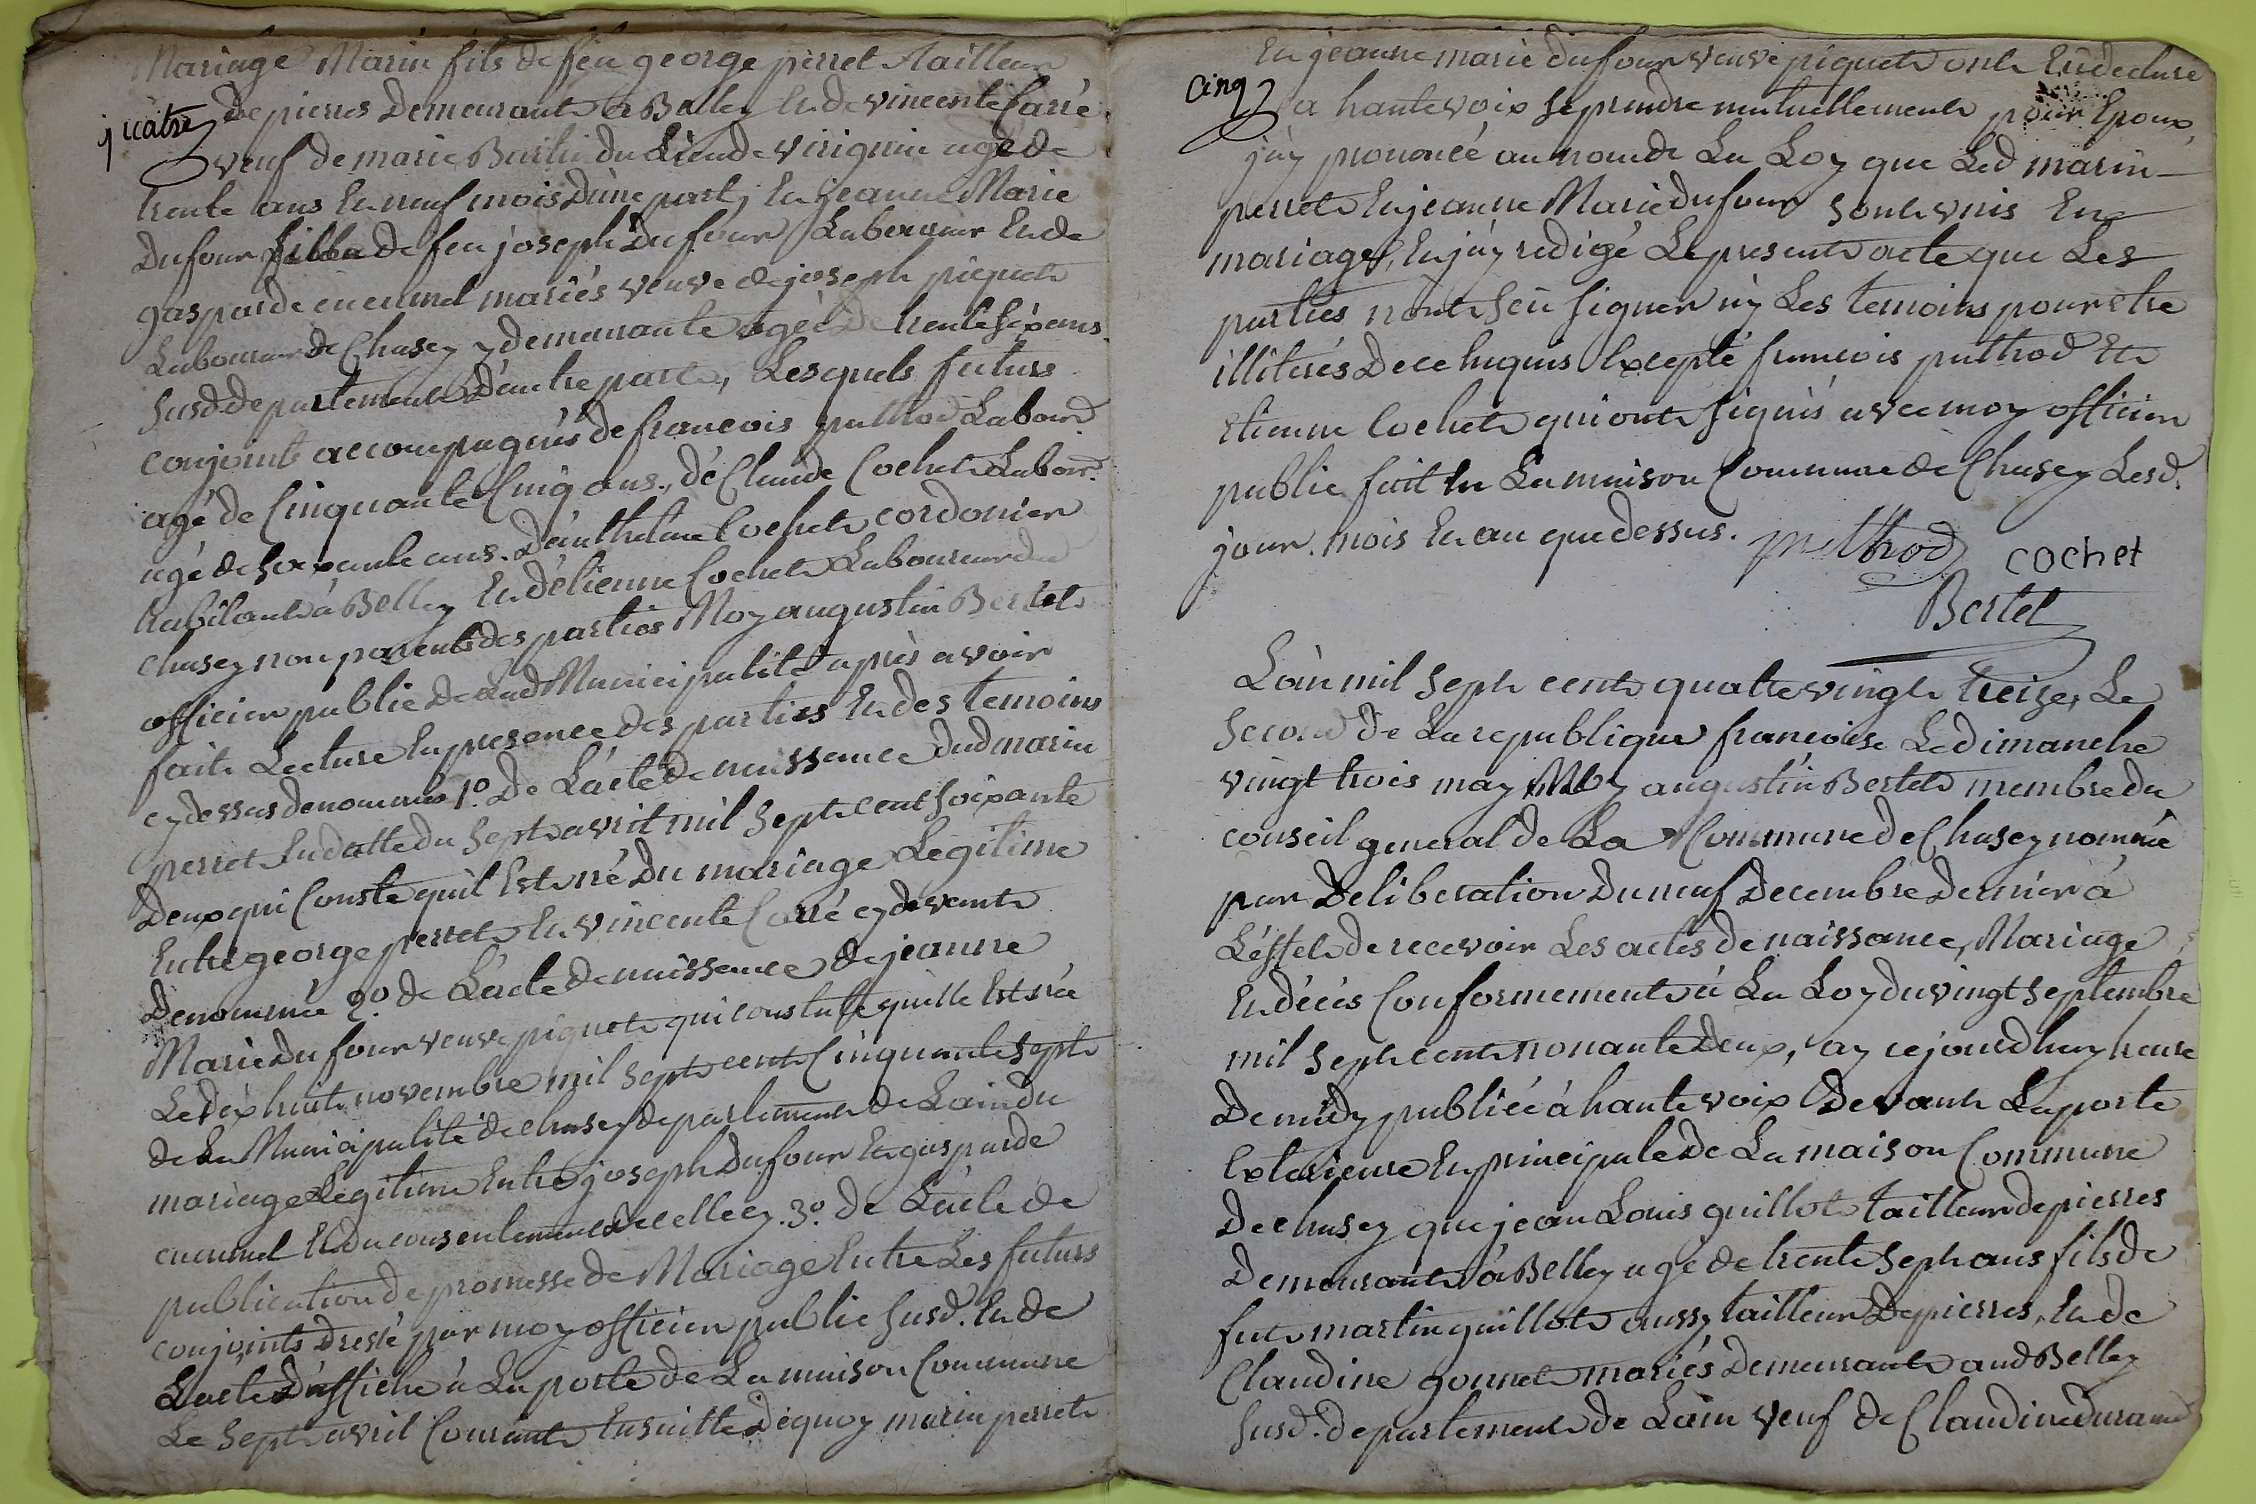 Mariage Marin fils de feu george perret tailleur
quatre
de pierres demeurant a Belley et de vincente Carré
veuf de marie Barlin du Lieu de virignin agé de
trente ans et neuf mois d'une part, et jeanne Marie
Dufour fille de feu joseph Dufour Laboureur et de
gasparde cucumel mariés veuve de joseph piquet
Laboureur de Chasey y demeurante agée de trente six ans
susd. departement d'autre part, Lesquels futurs
conjoints accompagnés de francois puthod Labour.
agé de Cinquante Cinq ans, de Claude Cochet Labour.
agé de soixante ans. d'anthelme Cochet cordonier
habitant a Belley et d'étienne Cochet Laboureur de
chasey non parents des parties Moy augustin Bertet
officier public de lad Municipalité après avoir
fait Lecture en presence des parties et des temoins
cy dessus denommés 1º. De L'acte de naissance dud marin
perret en datte du sept avril mil sept cent soixante
deux qui Conste quil Est né du mariage Legitime
Entre george perret et vincente Carré cy devant
denommée 2º. de L'acte de naissance de jeanne
Marie du four veuve piquet qui constate quelle Est née
Le dix huit novembre mil sept cent Cinquante sept
de La Municipalité de chasey departement de Lain du
mariage Legitime Entre joseph Dufour et gasparde
cucumel et du consentement de celle cy. 3º. de L'acte de
publication de promesse de Mariage Entre Les futurs
conjoints dressé par moy officier public susd. et de
L'acte d'affiche a La porte de La maison Commune
Le sept avril Courant Ensuitte de quoy marin perret
et jeanne marie dufour veuve piquet ont Eu declaré
cinq
a haute voix se prendre mutuellement pour Epoux,
j'ay prononcé au nom de La Loy que Led marin
perret et jeanne Marie dufour sont unis En
mariage, et j'ay redigé Le present acte que Les
parties n'ont sçu signer ny Les temoins pour être
illiterés de ce Enquis Excepté francois puthod et
etienne Cochet qui ont signés avec moy officier
public fait En La maison Commune de Chasey Lesd.
jour. mois et an que dessus. puthod
cochet
Bertet
L'ain mil sept cent quatre vingt treize, Le
second de La republique francoise Le dimanche
vingt trois may Moy augustin Bertet membre du
conseil general de La Commune de Chasey nommé
par Deliberation du neuf Decembre Dernier à
L'éffet de recevoir Les actes de naissance, Mariage
et décés Conformement à La Loy du vingt septembre
mil sept cent nonante deux, ay ce jourdhuy heure
de midy publiée à haute voix devant La porte
Exterieure et principale de La maison Commune
de chasey que jean Louis guillot tailleur de pierres
demeurant à Belley agé de trente sept ans fils de
fut martin guillot aussy tailleur de pierres, et de
Claudine gonnet mariés demeurant aud Belley
susd. departement de Lain veuf de Claudine durand